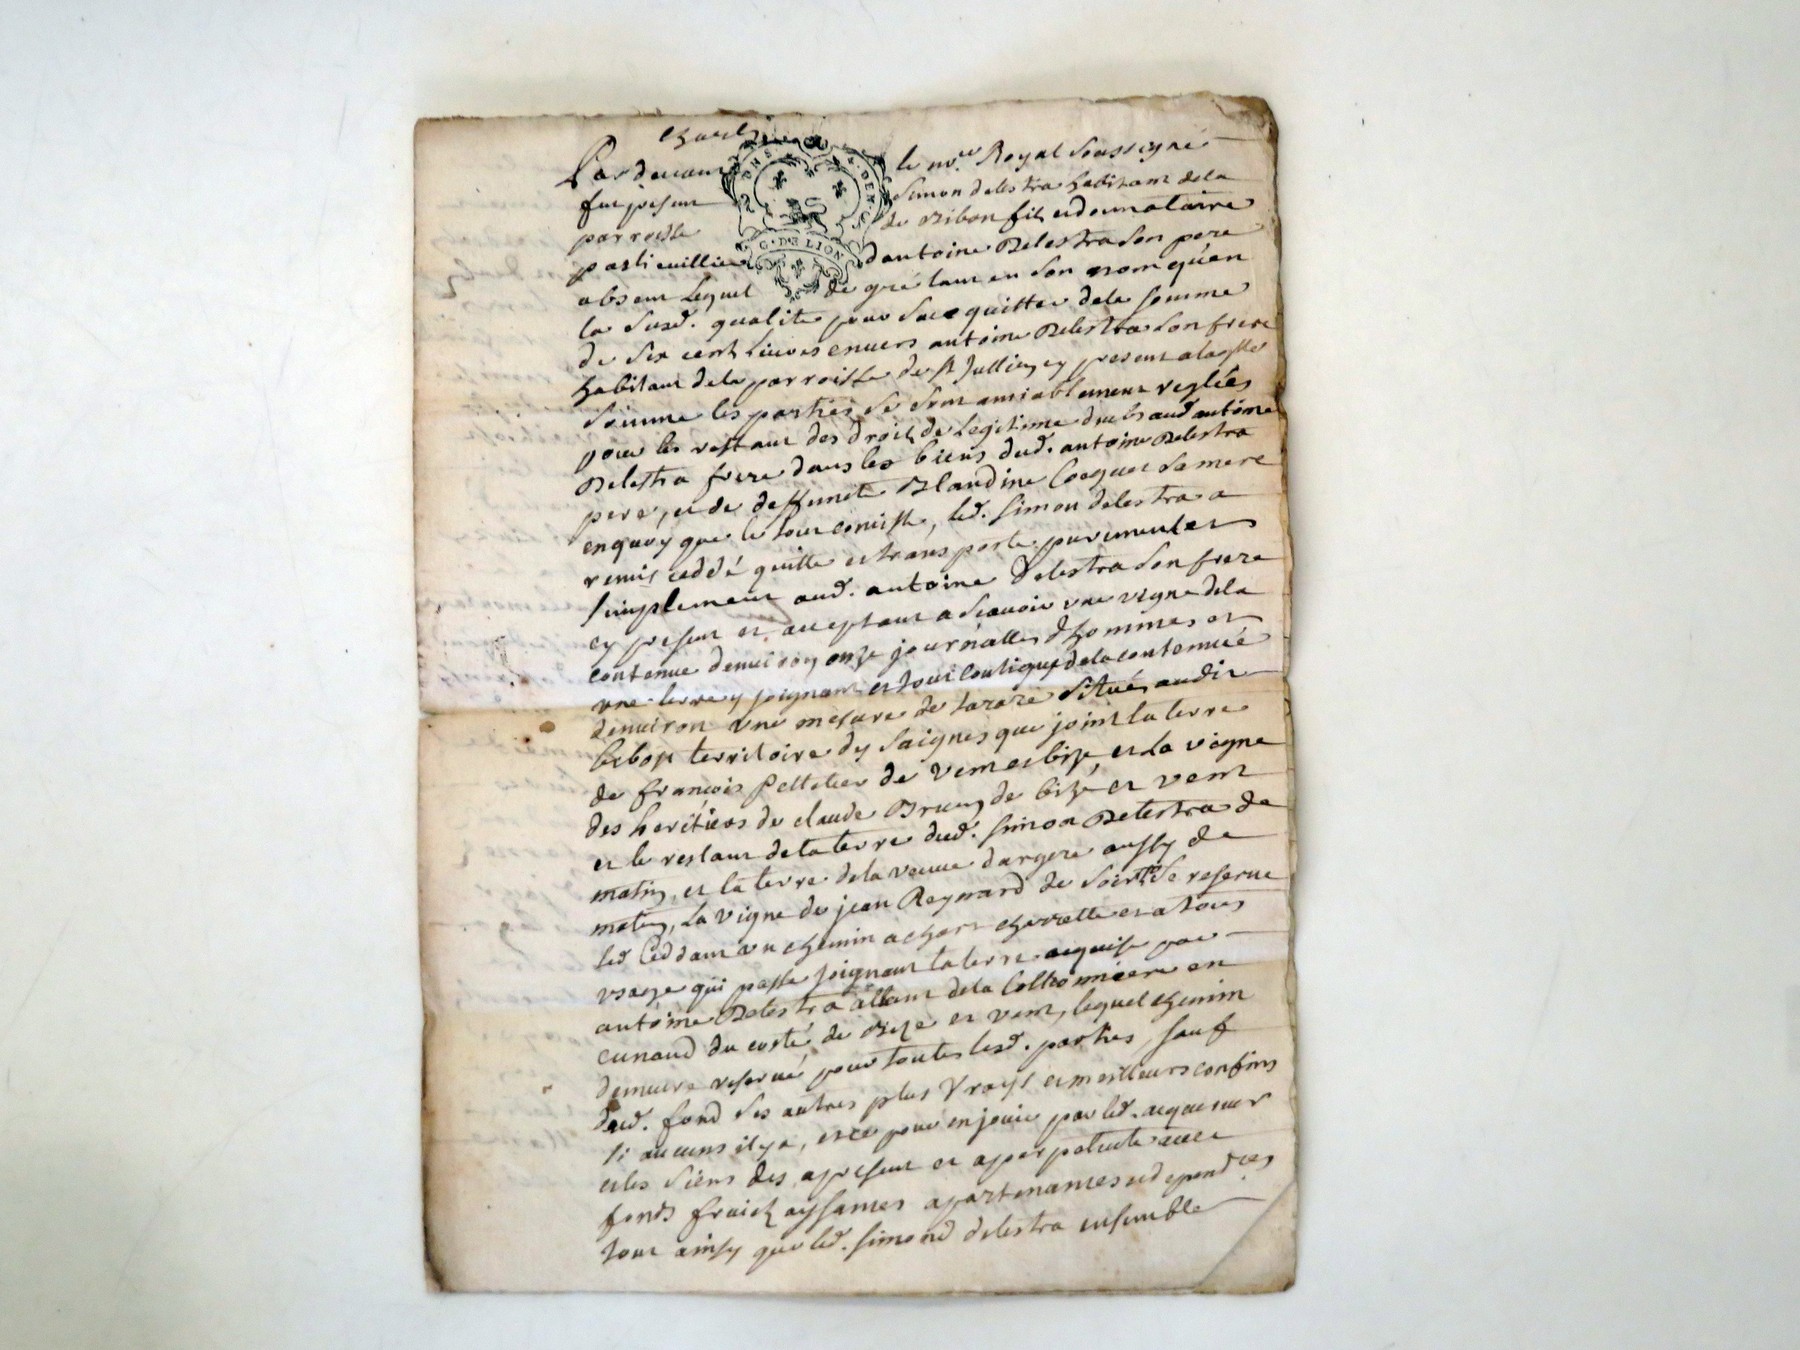 Pardevant le no.re Royal Soussigné
fut present Simon delestra habitant de la
parroisse de Ribon fils et donnataire
particuillier d'antoine Delestra son pere
absent Lequel de gré tant en son nom qu'en
la Susd. qualite pour Sacequitter de la somme
de Six cent Livres envers antoine Delestra Son frere
habitant de la parroisse de St Jullien cy present a laqlle
Somme les parties Se Sont amiablement reglées
pour les restant des droits de Legitime dubs aud antoine
Delestra frere dans les biens dud. antoine Delestra
pere, et de deffunte Blandine Coequet Sa mere
enquoy que le tout consiste, led. Simon delestra a
remis ceddé quitte et transporte purement et
simplement aud. antoine Delestra Son frere
cy present et acceptant a Scavoir une vigne de la
contenue denviron onze journalles d'hommes et
une terre y joignant et tout contigus de la contenuée
denviron une mesure de tarare Situés audit
territoire dy Saignes que joint la terre
de francois Pelletier de vent et bize, et La vigne
des heritiers de claude Brun de bize et vent
et le restant de la terre dud. Simon Delestra de
matin, et la terre de la veuve dargere aussy de
matin, La vigne de jean Reynard de Soir, Se reserve
led Ceddant un chemin a char charrette et a tous
usage qui passe joignant la terre acquise par
antoine Delestra allant de la Collonniere en
cunaud du costé de Bize et vent, lequel chemin
demeure reservé pour toutes lesd. parties, Sauf
dud. fond Ses autres plus Vrays et meilleurs confins
Si aucuns il y a, et ce pour en jouir par led. acquereur
et les Siens des apresent et a perpetuité avec
fonds fruicts aysances apartenances et depend.ces
tout ainsy que led. Simond delestra ensemble
G. DE LION